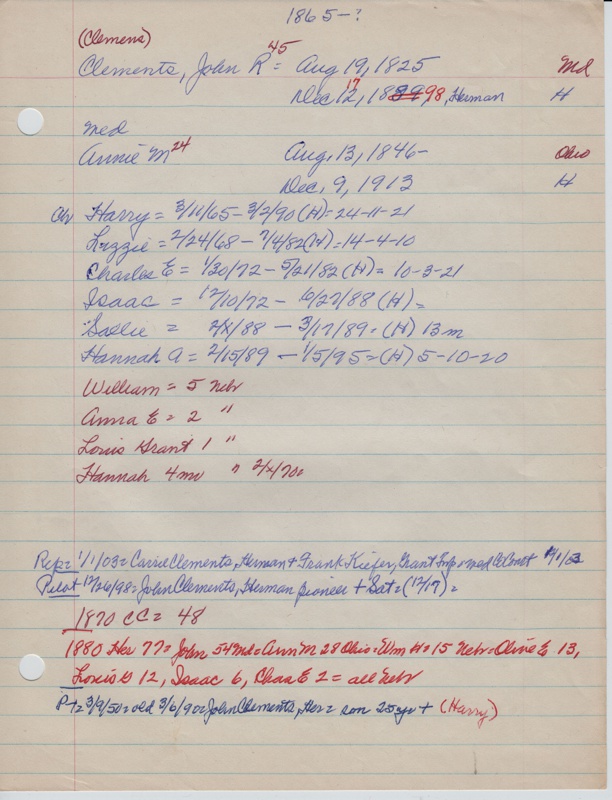 1865-?
(Clemens)
Clements, John R 45 = Aug 19, 1825 Md
Dec 12, 17 1899 98, Herman H
med
Annie M 24 Aug, 13, 1846- Ohio
Dec, 9, 1913 H
Ch Harry = 3/11/65 - 3/2/90 (H) = 24-11-21
Lizzie = 2/24/68 - 7/4/82 (H) = 14-4-10
Charles E = 1/30/72 - 5/21/82 (H) = 10-3-21
Isaac = 12/10/72 - 6/27/88 (H) =
Sallie = 2/x/88 - 3/17/89 = (H) 13 m
Hannah A = 2/15/89 - 1/5/95 = (H) 5-10-20
William = 5 Nebr
Anna E = 2 "
Louis Grant 1 "
Hannah 4 mo " 2/x/70 =
Rep = 1/1/03 = Carrie Clements, Herman + Frank Kiefer, Grant Twp = med 1/1/03
Pilot 12/26/98 = John Clements, Herman pioneer + Sat = (12/17) =
1870 CC = 48
1880 Her 77 = John 54 Md = Ann M 28 Ohio = Wm H = 15 Nebr = Olive E 13,
Louis G 12, Isaac 6, Chas E 2 = all Nebr
PT = 3/9/50 = old 3/6/90 = John Clements, Her = son 25 yr + (Harry)